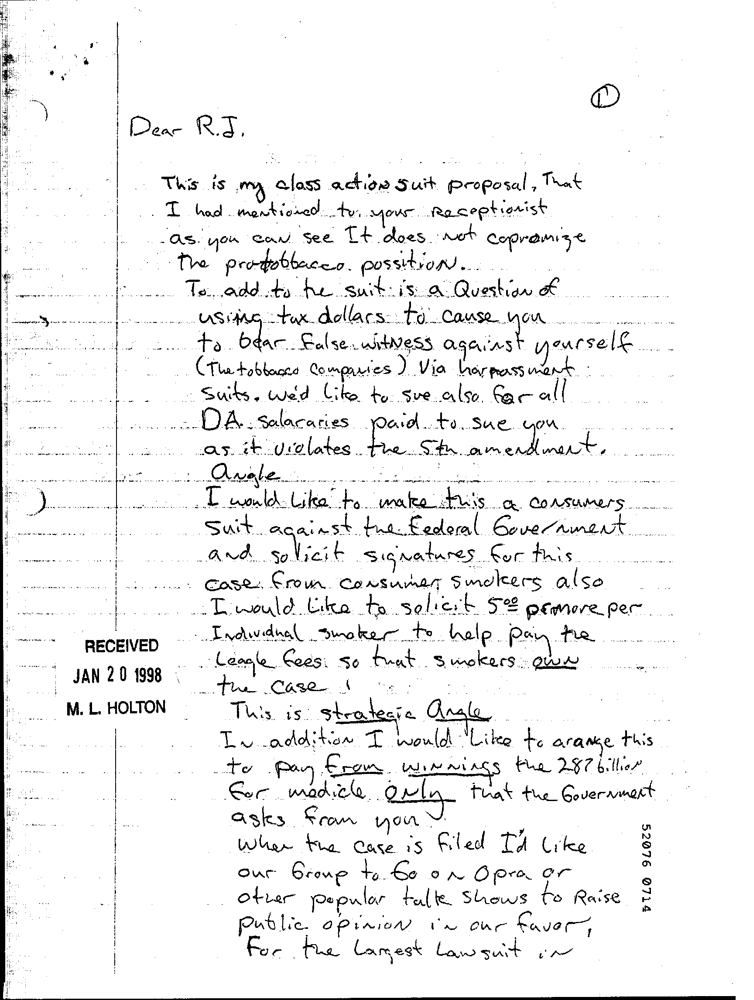 1
Dear R.J.
This is my class action suit proposal, That
I had mentioned to your Receptionist
as you can see It does not copromize
the protobbacco possition.
To add to the suit is a Question of
using tax dollars to cause you
to bear false witness against yourself
(The tobbacco Companies) Via harrassment
Suits. We'd Like to sue also for all
DA salararies paid to sue you
as it violates the 5th amendment.
Angle
I would Like to make this a consumers
Suit against the Federal Government
and solicit signatures for this
case from consumer smokers also
I would Like to solicit 5.00 or more per
Individual smoker to help pay the
Leagle fees so that smokers own
the case !
This is strategic Angle
In addition I would Like to arange this
to pay from winnings the 287 billion
for medicle only that the Government
asks from you
When the case is filed I'd Like
our Group to Go on Opra or
other popular talk shows to Raise
public opinion in our favor,
For the Largest Lawsuit in
RECEIVED
JAN 20 1998
M. L. HOLTON
52076 0714